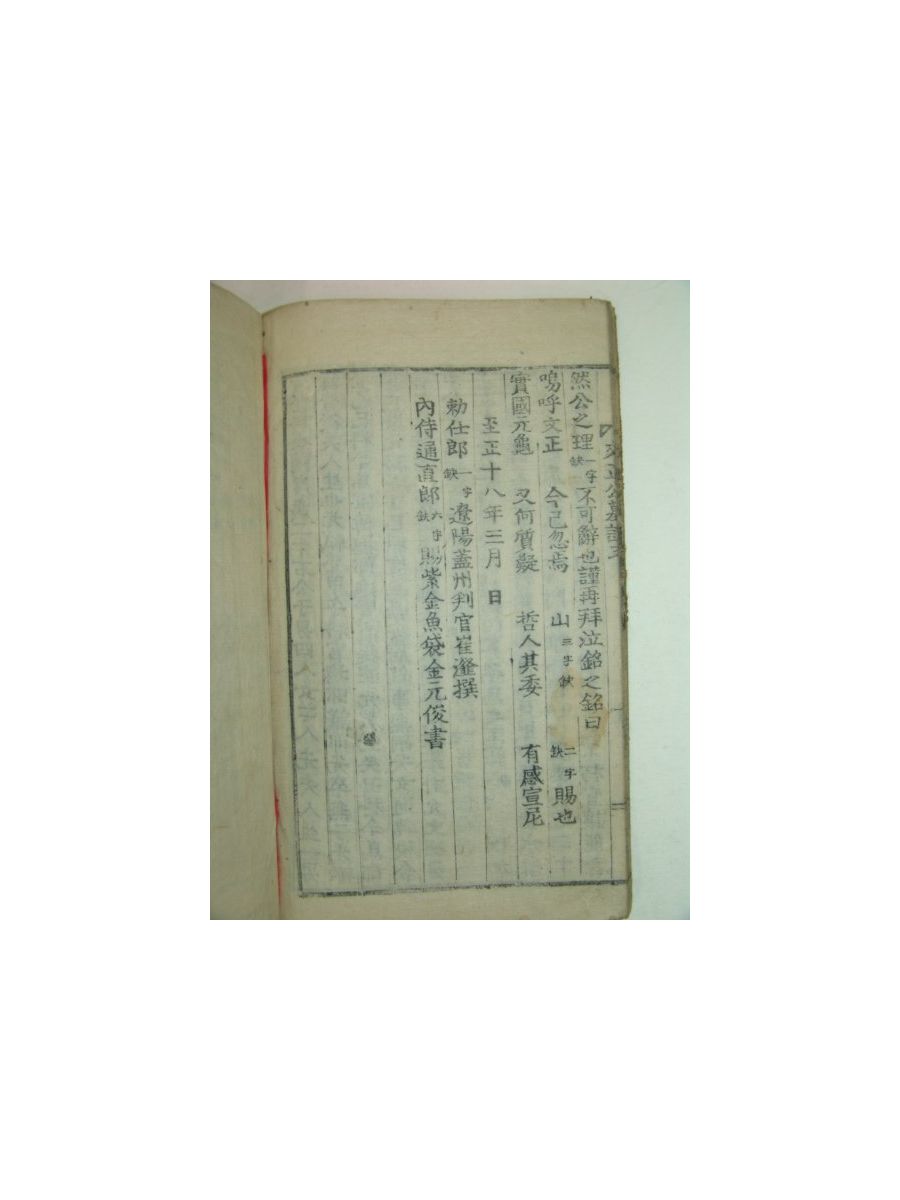 文正公墓誌
然公之理一字缺不可辭也謹再拜泣銘之銘曰
嗚呼文正 今已忽焉 山三字缺 二字缺賜也
實國元龜 又何質疑 哲人其委 有感宣尼
至正十八年三月 日
勅仕郎一字缺遼陽蓋州判官崔瀣撰
內侍通直郎六字缺賜紫金魚袋金元俊書